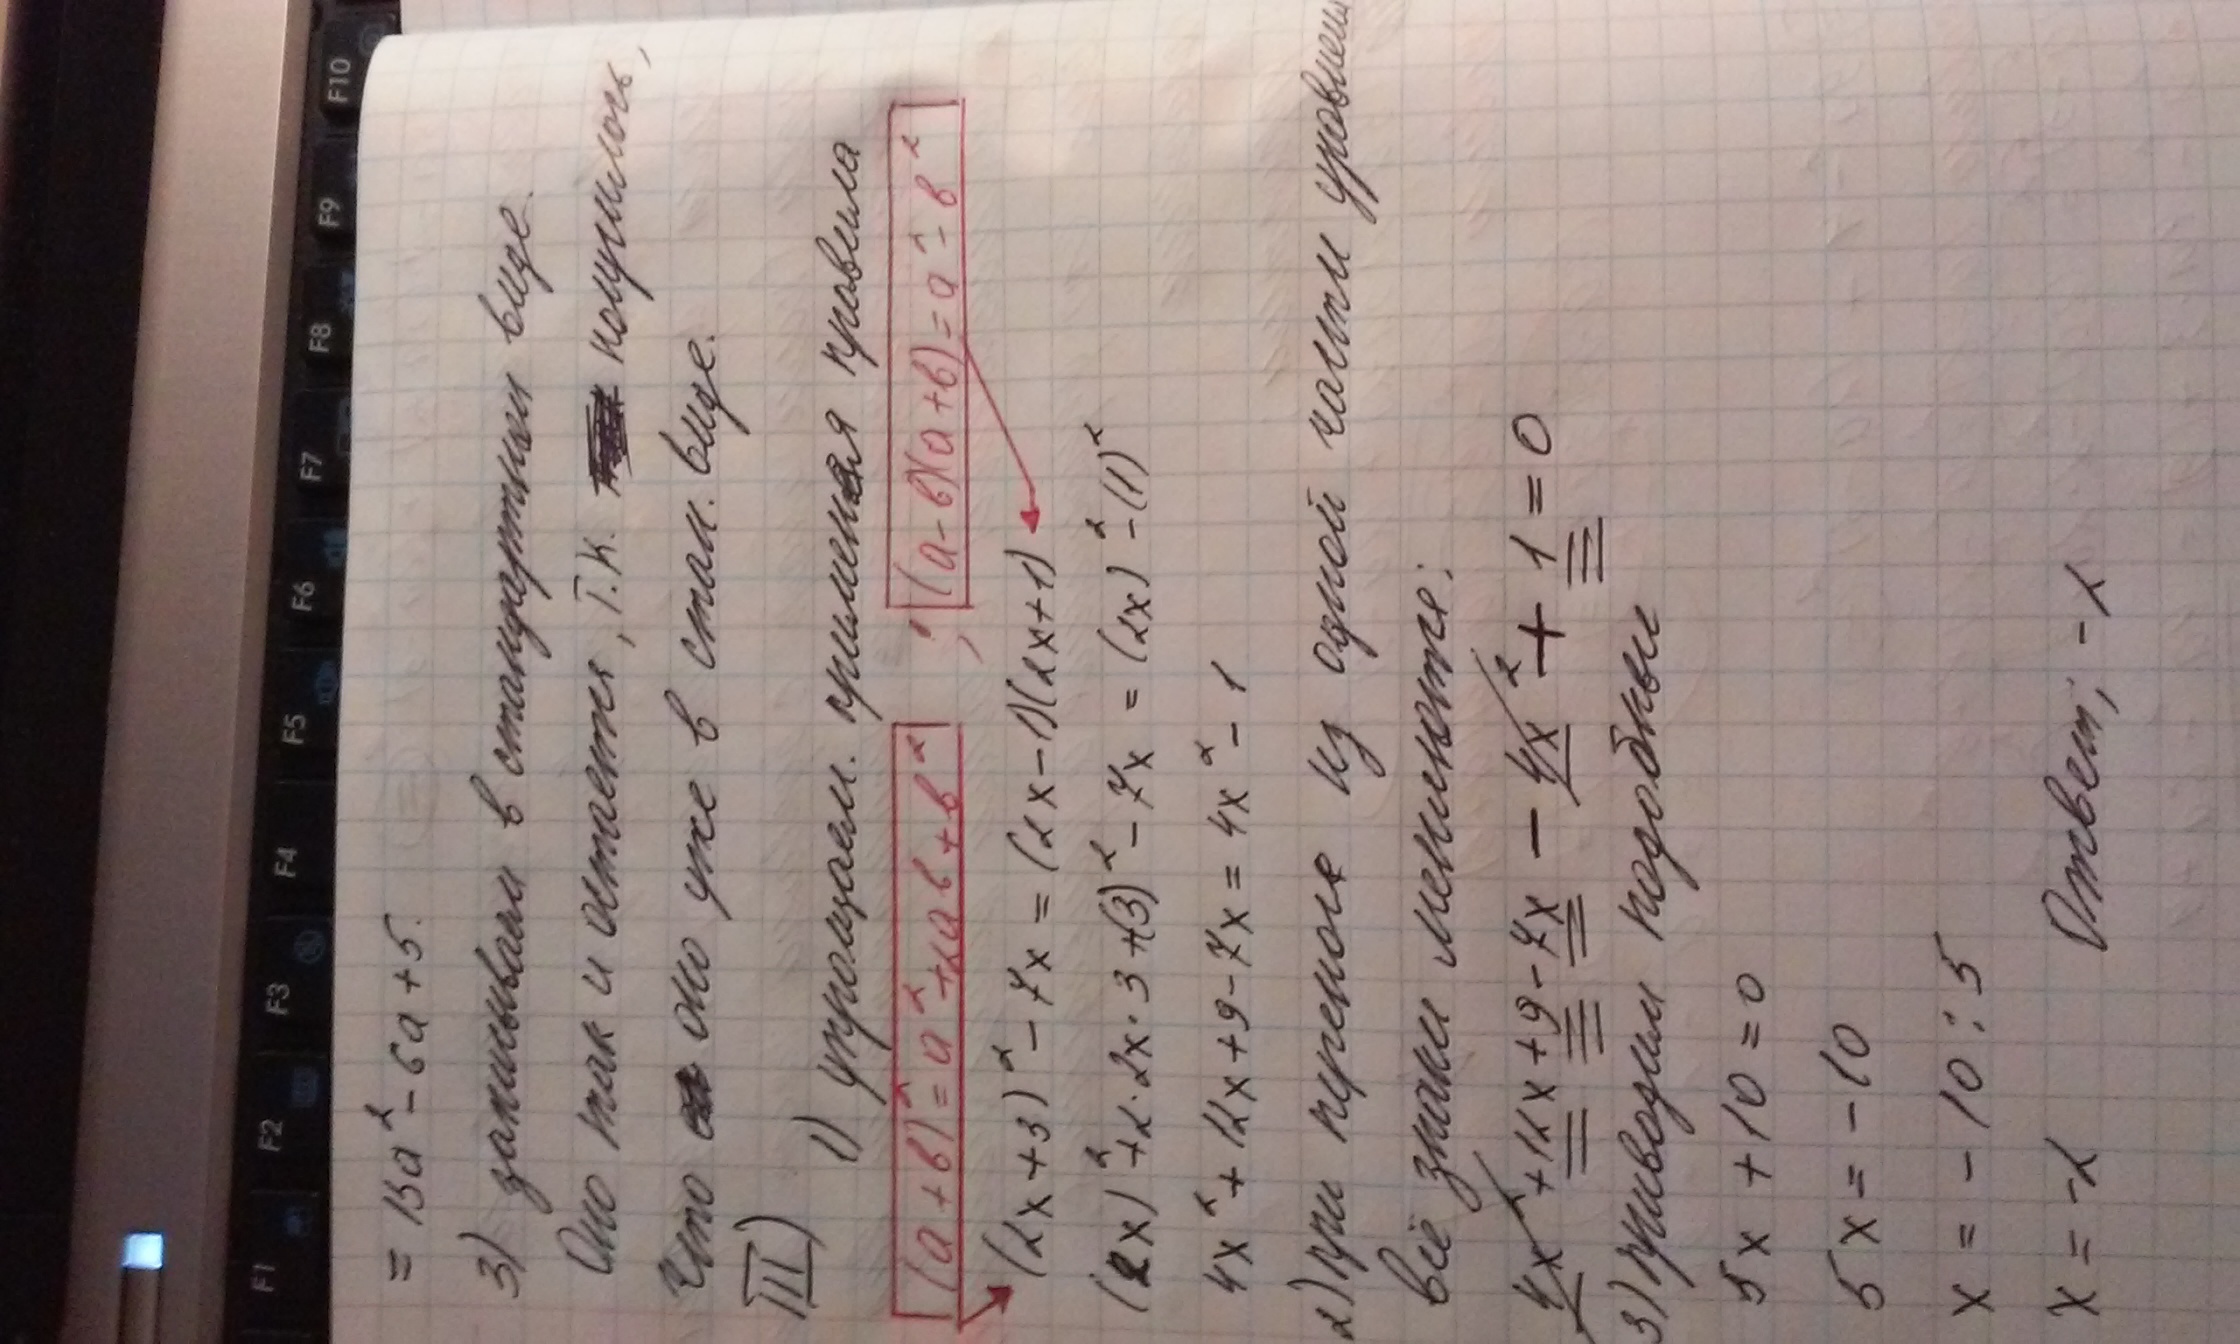 F1 F2 F3 F4 F5 F6 F7 F8 F9 F10
= 13a² - 6a + 5.
3) записываем в стандартном виде.
Оно так и остается, т.к. получилось,
что оно уже в стан. виде.
III) 1) упрощаем. применяя правила
(a + в)² = a² + 2aв + в² ; (a - в)(a + в) = a² - в²
(2x + 3)² - 7x = (2x - 1)(2x + 1)
(2x)² + 2 · 2x · 3 + (3)² - 7x = (2x)² - (1)²
4x² + 12x + 9 - 7x = 4x² - 1
2) при переносе из одной части уравнен
всё знаки меняются:
4x² + 12x + 9 - 7x - 4x² + 1 = 0
3) приводим подобные
5x + 10 = 0
5x = -10
x = -10 : 5
x = -2 Ответ; -2